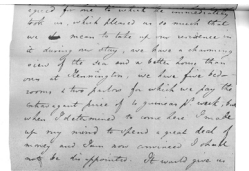 agreed for me to which he immediately
took us, which pleased us so much that
we mean to take up our residence in
it during our stay, we have a charming
view of the sea and a better house than
ours at Kennington, we have five bed-
rooms & two parlors for which we pay the
price of 4 guineas pr week. And
when I determined to come here I make
up my mind to spend a great deal of
money and I am now convinced I shall
not be disappointed. It would give us